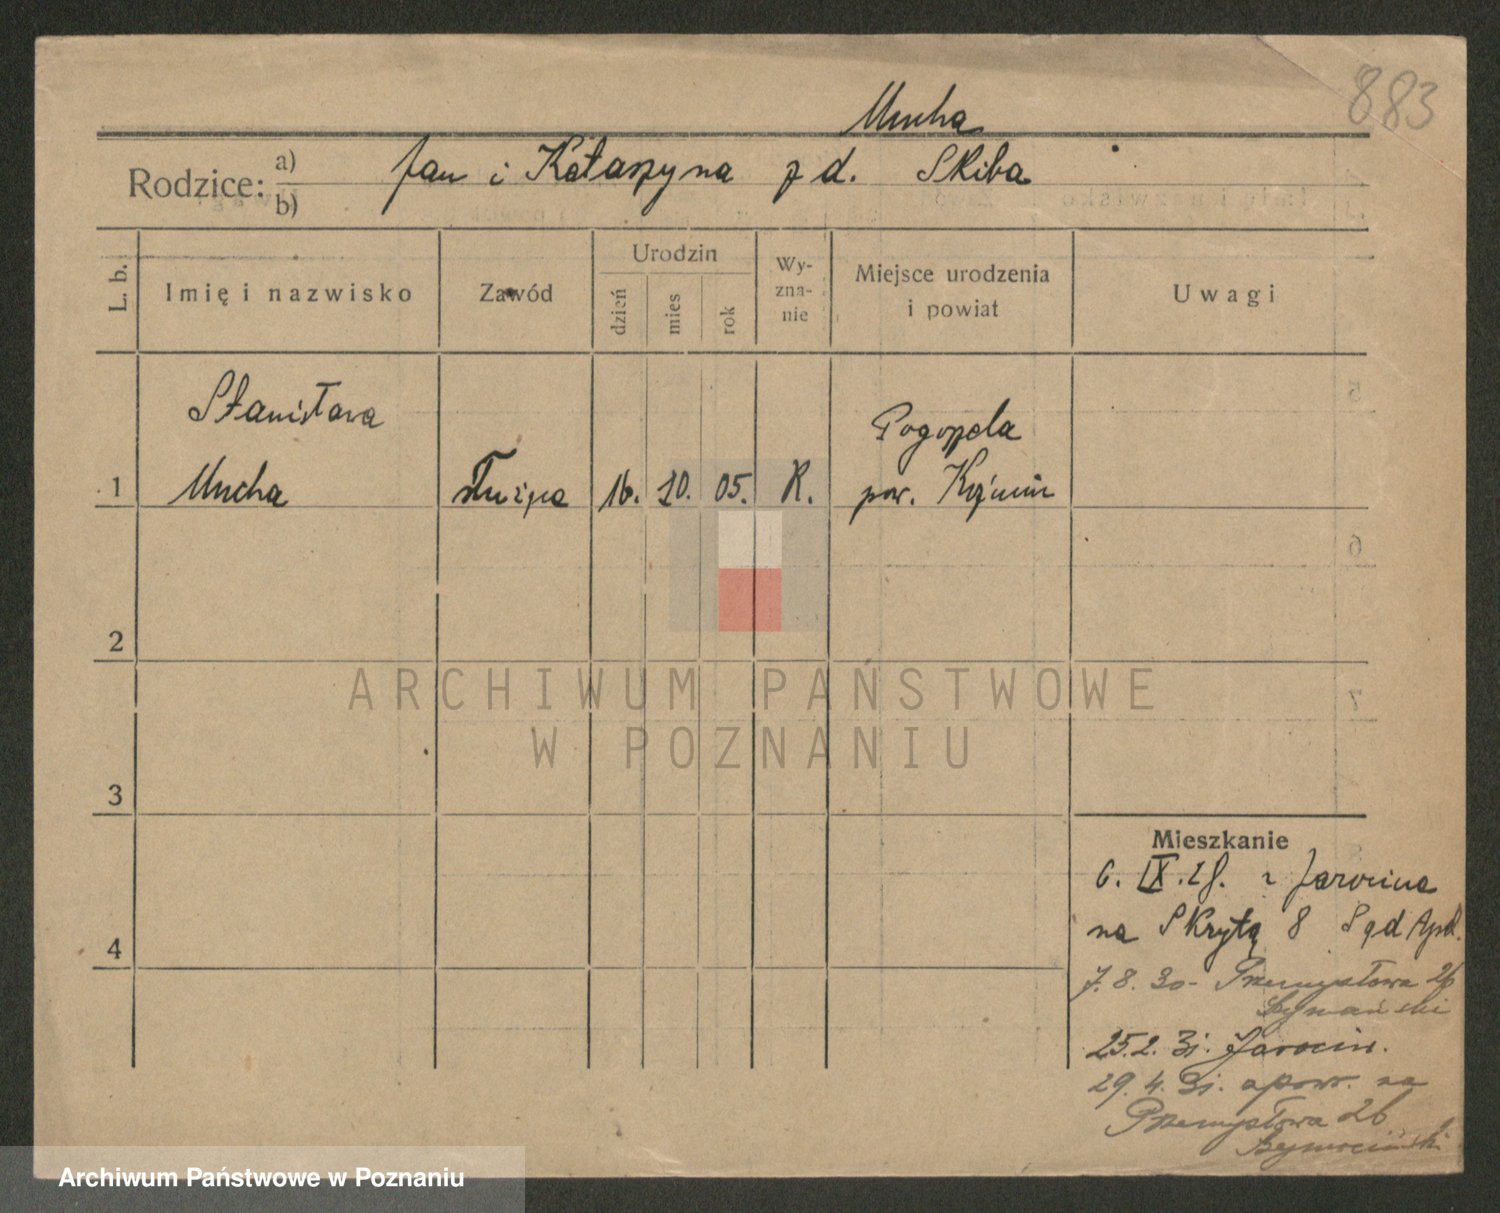 883
Mucha
Rodzice: a) b)
Jan i Katarzyna z d. Skiba
L. b.
Imię i nazwisko
Zawód
Urodzin
dzień
mies
rok
Wy-
zna-
nie
Miejsce urodzenia
i powiat
Uwagi
Stanisława
1 Mucha
służąca
16. 10. 05. R.
Pogorzela
pow. Koźmin
2
3
4
ARCHIWUM PAŃSTWOWE
W POZNANIU
Mieszkanie
6. IX. 28. z Jarocina
na Skrytą 8 Sąd Apel.
7. 8. 30 - Przemysłowa 26
25.2. 31. Jarocin.
29. 4. 31. z pow. na
Przemysłowa 26
Archiwum Państwowe w Poznaniu
5
6
7
8